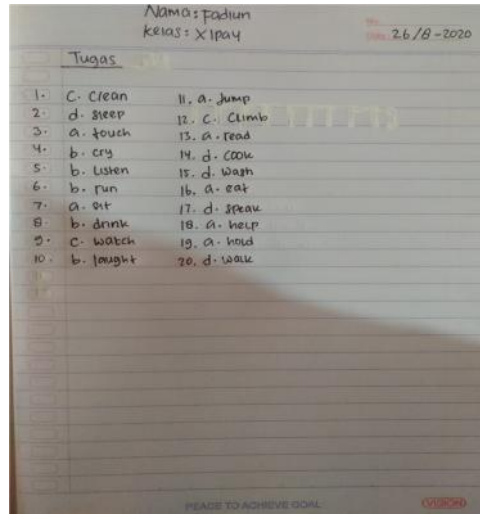 Nama : Fadlun
Kelas : XIpa4
No.
Date. 26/8-2020
Tugas
1. C. Clean
2. d. sleep
3. a. touch
4. b. cry
5. b. Listen
6. b. run
7. a. sit
8. b. drink
9. c. watch
10. b. laught
11. a. Jump
12. C. Climb
13. a. read
14. d. cook
15. d. wash
16. a. eat
17. d. speak
18. a. help
19. a. hold
20. d. walk
PEACE TO ACHIEVE GOAL
VISION